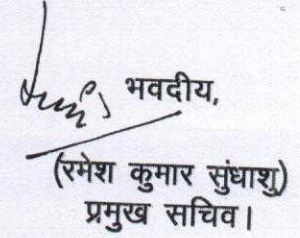 भवदीय,
(रमेश कुमार सुंधाशु)
प्रमुख सचिव।